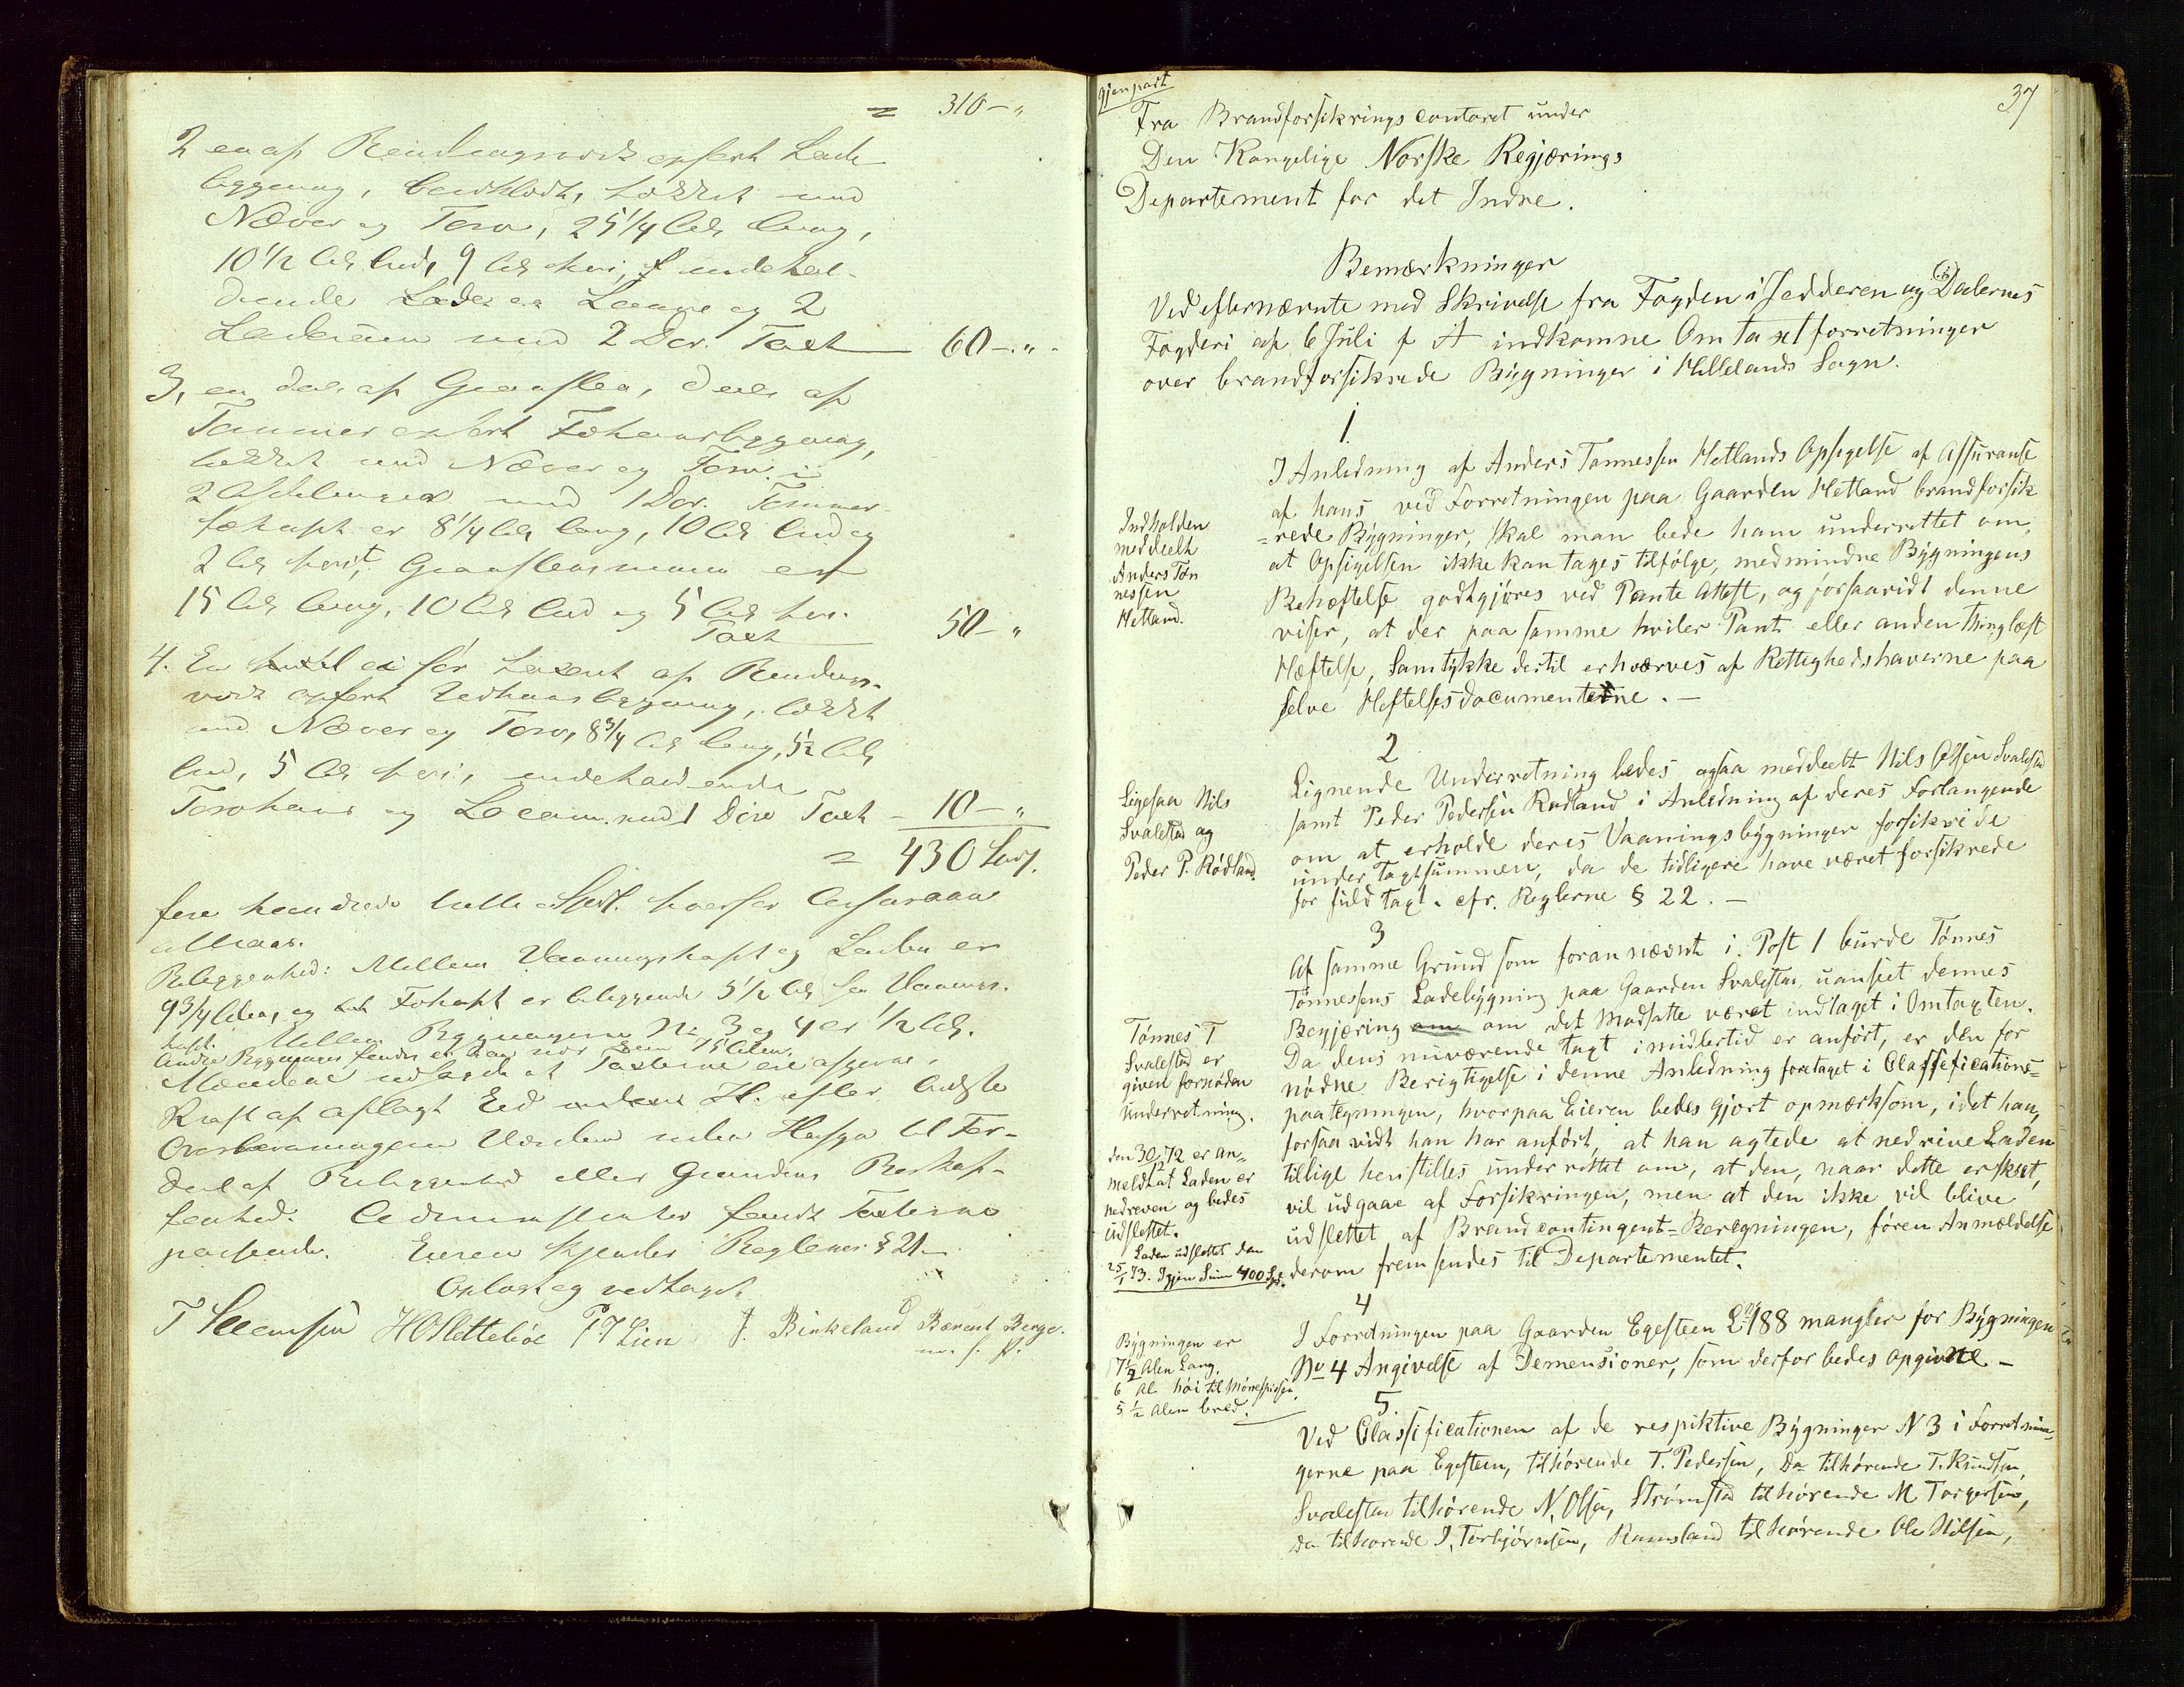 = 310 - "
2 en af Bindingsverk opført Lade-
bygning, bordklædt, tækket med
Næver og Torv, 25 1/4 Al. lang,
10 1/2 Al. bred, 9 Al. høi, indehol-
dende Laave og 2
Laderum med 2 Dør. Taxt 60 - "
3, en deel af Graasten, deels af
Tømmer opført Føhuusbygning,
tækket med Næver og Torv i
2 Afdelinger med 1 Dør. Tømmer-
er 8 1/4 Al. lang, 10 Al. bred og
2 Al. høit, Graasteensmuren er
15 Al. lang, 10 Al. bred og 5 Al. høi.
Taxt 50 - "
4. En før taxeret af Bindings-
værk opført Vedhuusbygning, tækket
med Næver og Torv, 8 3/4 Al. lang, 5 1/2 Al.
bred, 5 Al. høi, indeholdende
Torvhuus og med 1 Dør Taxt - 10 - "
= 430
fire hundrede Spdl. hvorfor
Beliggenhed: Mellem Vaaningshuset og Laden er
9 3/4 Alen, og er beliggende 5 1/2 Al. fra Vaanings-
huset. Mellem Bygningerne No 3 og 4 er 1/2 Al.
Andre Bygninger findes ei 75 Alen.
Mændene at Taxterne ere afgivne i
Kraft af aflagt Eed efter bedste
Overbeviisning uden Hensyn til For-
deel af Beliggenhed eller Grundens Beskaf-
fenhed. fandt Taxterne
passende. Eieren kjender Reglerne § 21 -
Oplæst og vedtaget
HOSlettebøe P.T Lien J. Birkeland Bærent Berge.
m. f. P.
Gjenpart
37
Fra Brandforsikringscontoret under
Den Kongelige Norske Regjerings
Departement for det Indre.
Bemærkninger
Ved efternævnte med Skrivelse fra Fogden i Jedderen og Dalernes
Fogderi af 6 Juli f A indkomne Omtaxtforretninger
over brandforsikrede Bygninger i Hellelands Sogn.
1
I Anledning af Anders Tønnessen Hetlands Opsigelse af Assuranse
af hans ved Forretningen paa Gaarden Hetland brandforsik
=rede Bygninger, skal man bede ham underrettet om,
at Opsigelsen ikke kan tages tilfølge, medmindre Bygningens
Behæftelse godtgjøres ved Pante Attest, og forsaavidt denne
viser, at der paa samme hviler Pant eller anden thinglæst
Hæftelse, Samtykke dertil erhværves af Rettighedshaverne paa
selve Heftelsesdocumenterne. -
Indholden
meddeelt
Anders Tøn
nessen
Hetland.
2
Lignende Underretning bedes ogsaa meddeelt Nils Olsen Svalestad
samt Peder Pedersen Rødland i Anledning af deres Forlangende
om at erholde deres Vaaningsbygninger forsikrede
under Taxtsummen, da de tidligere have været forsikrede
for fuld Taxt. cfr. Reglerne § 22. -
Ligesaa Nils
Svalestad og
Peder P. Rødland.
3
Af samme Grund som forannævnt i Post 1 burde Tønnes
Tønnessens Ladebygning paa Gaarden Svalestad, uanseet dennes
Begjæring om det Modsatte været indtaget i Omtaxten.
Da dens nuværende Taxt imidlertid er anført, er den for
nødne Berigtigelse i denne Anledning foretaget i Classefications=
paategningen, hvorpaa Eieren bedes gjort opmærksom, idet han,
forsaavidt han har anført, at han agtede at nedrive Laden
tillige henstilles underrettet om, at den, naar dette er skeet,
vil udgaae af Forsikringen, men at den ikke vil blive
udslettet af Brandcontingent=Beregningen, føren Anmeldelse
derom fremsendes til Departementet.
Tønnes T
Svalestad er
given fornøden
Underretning.
den 30/12 72 er an=
meldt at Laden er
nedreven og bedes
udslettet.
Laden udslettet den
25/1 73. Igjen Sum 400 Spd.
4
I Forretningen paa Gaarden Egesteen L. 188 mangler for Bygningen
No 4 Angivelse af Demensioner, som derfor bedes opgivne -
Bygningen er
7 1/2 Alen Lang,
6 Al høi til Mønespidsen,
5 1/2 Alen bred.
5.
Ved Classificationen af de respiktive Bygninger N 3 i Forretnin=
gerne paa Egesteen, tilhørende T. Pedersen, Do tilhørende T. Knudsen,
Svalestad tilhørende N. Olsen, Strømstad tilhørende M Torgersen,
Do tilhørende J. Torbjørnsen, Ramsland tilhørende Ole Nilsen,